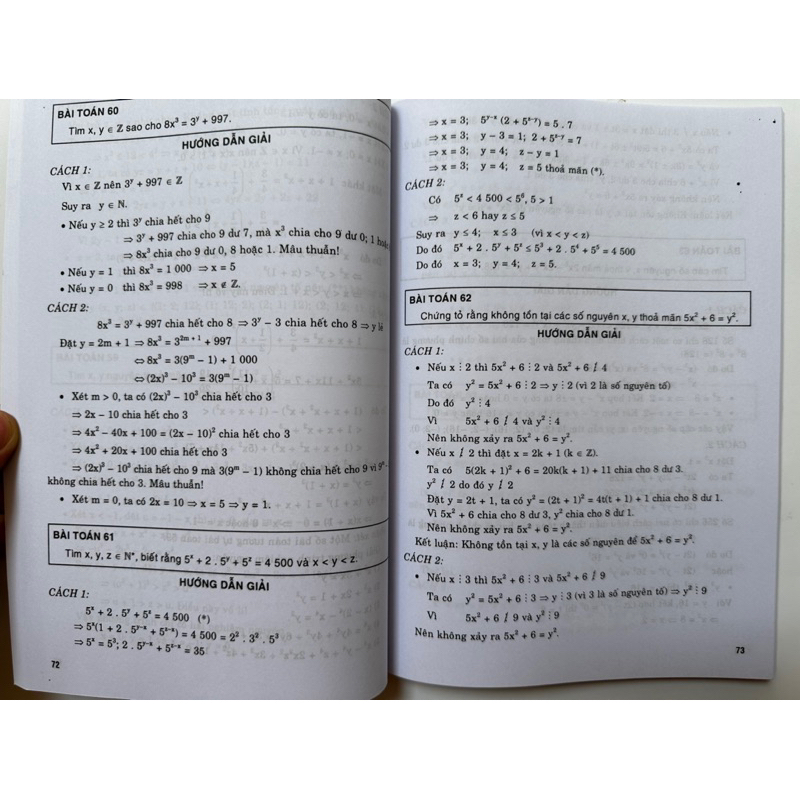 BÀI TOÁN 60
Tìm x, y ∈ ℤ sao cho 8x³ = 3ʸ + 997.
HƯỚNG DẪN GIẢI
CÁCH 1:
Vì x ∈ ℤ nên 3ʸ + 997 ∈ ℤ
Suy ra y ∈ ℕ.
• Nếu y ≥ 2 thì 3ʸ chia hết cho 9
⇒ 3ʸ + 997 chia cho 9 dư 7, mà x³ chia cho 9 dư 0; 1 hoặc
⇒ 8x³ chia cho 9 dư 0, 8 hoặc 1. Mâu thuẫn!
• Nếu y = 1 thì 8x³ = 1 000 ⇒ x = 5
• Nếu y = 0 thì 8x³ = 998 ⇒ x ∉ ℤ.
CÁCH 2:
8x³ = 3ʸ + 997 chia hết cho 8 ⇒ 3ʸ – 3 chia hết cho 8 ⇒ y lẻ
Đặt y = 2m + 1 ⇒ 8x³ = 3²ᵐ⁺¹ + 997
⇔ 8x³ = 3(9ᵐ – 1) + 1 000
⇔ (2x)³ – 10³ = 3(9ᵐ – 1)
• Xét m > 0, ta có (2x)³ – 10³ chia hết cho 3
⇒ 2x – 10 chia hết cho 3
⇒ 4x² – 40x + 100 = (2x – 10)² chia hết cho 3
⇒ 4x² + 20x + 100 chia hết cho 3
⇒ (2x)³ – 10³ chia hết cho 9 mà 3(9ᵐ – 1) không chia hết cho 9 vì 9ᵐ –
không chia hết cho 3. Mâu thuẫn!
• Xét m = 0, ta có 2x = 10 ⇒ x = 5 ⇒ y = 1.
BÀI TOÁN 61
Tìm x, y, z ∈ ℕ*, biết rằng 5ˣ + 2 . 5ʸ + 5ᶻ = 4 500 và x < y < z.
HƯỚNG DẪN GIẢI
CÁCH 1:
5ˣ + 2 . 5ʸ + 5ᶻ = 4 500 (*)
⇒ 5ˣ(1 + 2 . 5ʸ⁻ˣ + 5ᶻ⁻ˣ) = 4 500 = 2² . 3² . 5³
⇒ 5ˣ = 5³; 2 . 5ʸ⁻ˣ + 5ᶻ⁻ˣ = 35
72
⇒ x = 3; 5ʸ⁻ˣ (2 + 5ᶻ⁻ʸ) = 5 . 7
⇒ x = 3; y – 3 = 1; 2 + 5ᶻ⁻ʸ = 7
⇒ x = 3; y = 4; z – y = 1
⇒ x = 3; y = 4; z = 5 thoả mãn (*).
CÁCH 2:
Có 5ᶻ < 4 500 < 5⁶, 5 > 1
⇒ z < 6 hay z ≤ 5
Suy ra y ≤ 4; x ≤ 3 (vì x < y < z)
Do đó 5ˣ + 2 . 5ʸ + 5ᶻ ≤ 5³ + 2 . 5⁴ + 5⁵ = 4 500
Do đó x = 3; y = 4; z = 5.
BÀI TOÁN 62
Chứng tỏ rằng không tồn tại các số nguyên x, y thoả mãn 5x² + 6 = y².
HƯỚNG DẪN GIẢI
CÁCH 1:
• Nếu x ⋮ 2 thì 5x² + 6 ⋮ 2 và 5x² + 6 ⋮̸ 4
Ta có y² = 5x² + 6 ⋮ 2 ⇒ y ⋮ 2 (vì 2 là số nguyên tố)
Do đó y² ⋮ 4
Vì 5x² + 6 ⋮̸ 4 và y² ⋮ 4
Nên không xảy ra 5x² + 6 = y².
• Nếu x ⋮̸ 2 thì đặt x = 2k + 1 (k ∈ ℤ).
Ta có 5(2k + 1)² + 6 = 20k(k + 1) + 11 chia cho 8 dư 3.
y² ⋮̸ 2 do đó y ⋮̸ 2
Đặt y = 2t + 1, ta có y² = (2t + 1)² = 4t(t + 1) + 1 chia cho 8 dư 1.
Vì 5x² + 6 chia cho 8 dư 3, y² chia cho 8 dư 1.
Nên không xảy ra 5x² + 6 = y².
Kết luận: Không tồn tại x, y là các số nguyên để 5x² + 6 = y².
CÁCH 2:
• Nếu x ⋮ 3 thì 5x² + 6 ⋮ 3 và 5x² + 6 ⋮̸ 9
Ta có y² = 5x² + 6 ⋮ 3 ⇒ y ⋮ 3 (vì 3 là số nguyên tố) ⇒ y² ⋮ 9
Vì 5x² + 6 ⋮̸ 9 và y² ⋮ 9
Nên không xảy ra 5x² + 6 = y².
73